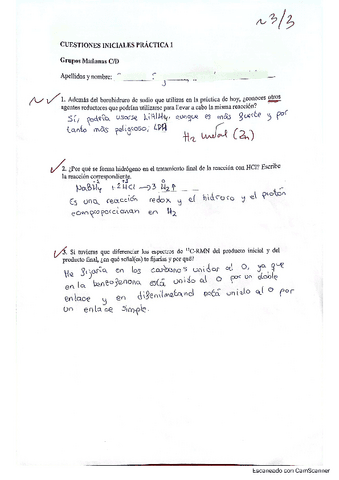 ~3/3
CUESTIONES INICIALES PRÁCTICA 1
Grupos Mañanas C/D
Apellidos y nombre:
1. Además del borohidruro de sodio que utilizas en la práctica de hoy, ¿conoces otros
agentes reductores que podrían utilizarse para llevar a cabo la misma reacción?
Sí, podría usarse LiAlH4, aunque es más fuerte y por
tanto más peligroso, LDA
H2 metal (Zn)
2. ¿Por qué se forma hidrógeno en el tratamiento final de la reacción con HCl? Escribe
la reacción correspondiente.
NaBH4 + 2HCl → 3 H2↑
Es una reacción redox y el hidruro y el protón
comproporcionan en H2
3. Si tuvieras que diferenciar los espectros de 13C-RMN del producto inicial y del
producto final, ¿en qué señal(es) te fijarías y por qué?
Me fijaría en los carbonos unidos al O, ya que
en la benzofenona está unido al O por un doble
enlace y en difenilmetanol está unido al O por
un enlace simple.
Escaneado con CamScanner